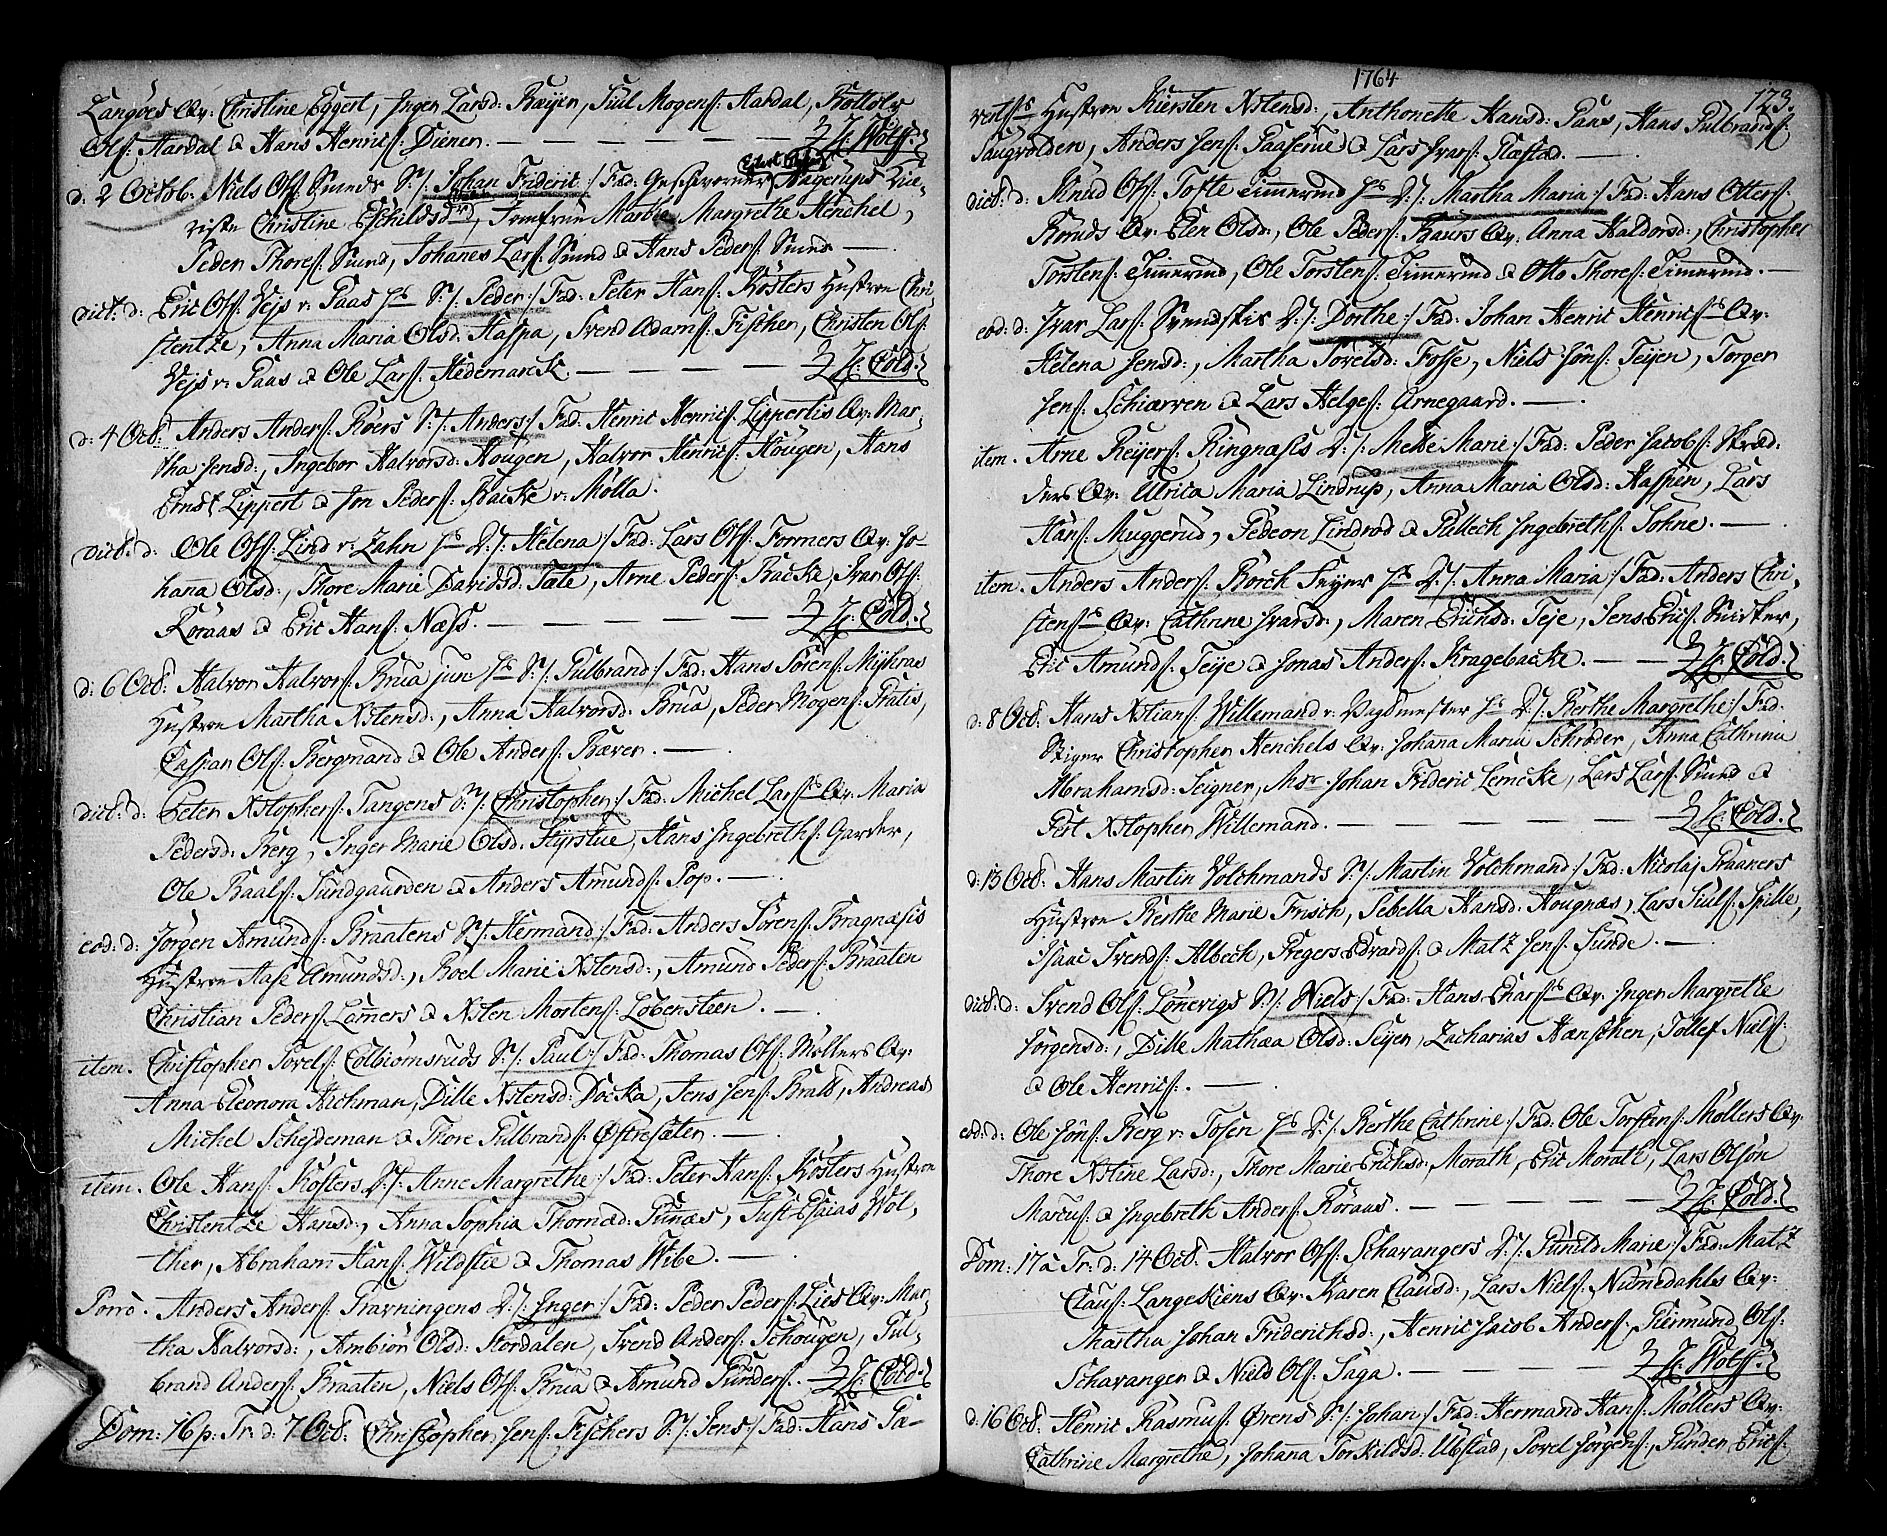 Langöes Qv: Christine Eggert, Inger Larsd: Bæyer, Juul Mogens: Aardal, Bottolv
Ols: Aardal & Hans Henrics: Diener. — H: Wolff.
d: 2 Octob: Niels Ols: Sunds S: /: Johan Frideric :/ Fad: Geschworner Nagerups Kie-
riste Christine Eschildsd, Jomfrue Marbie Margrethe Henchel,
Peder Thores: Sund, Johanes Lars: Sund & Hans Peders: Sund —
dict: d: Eric Ols: Vejs v: Saas S: /: Peder :/ Fad: Peter Hans: Kösters Hustroe Chri-
stentze, Anna Maria Olsd: Haspa, Svend Adams: Fischer, Christen Ols:
Vejs v: Saas & Ole Lars: Hedemarck. — H: Cold.
d: 4 Octb: Anders Anders: Röers S: /: Anders :/ Fad: Henric Henrics: Lippertis Qv: Mar-
tha Jensd:, Ingebor Halvorsd: Hougen, Halvor Henrics: Hougen, Hans
Ernst Lippert & Jon Peders: Backe v: Mölla.
dictb: d: Ole Ols: Lind v: Zahn D: /: Helena :/ Fad: Lars Ols: Formers Qv: Jo-
hana Olsd:, Thore Marie Davidsd: Tale, Arne Peders: Backe, Ivar Ols:
Röraas & Eric Hans: Næss. — H: Cold.
d: 6 Octb: Halvor Halvors: Brua jun: S: /: Gulbrand :/ Fad: Hans Sörens: Myhras
Hustroe Martha Xstensd:, Anna Halvorsd: Brua, Peder Mogens: Pratis,
Caspar Ols: Bergmand & Ole Anders: Bæver. —
dictb: d: Peter Xstophers: Tangens S: /: Christopher :/ Fad: Michel Lars: Qv: Maria
Pedersd: Berg, Inger Marie Olsd: Styrstue, Hans Ingebreths: Garder,
Ole Baals: Sundgaarden & Anders Amunds: Pop. —
eod: d: Jörgen Amunds: Braatens S: /: Hermand :/ Fad: Anders Sörens: Bragnæsis
Hustroe Aase Amundsd:, Boel Marie Xstensd:, Amund Peders: Braaten
Christian Peders: Lamers & Xsten Mortens: Lobensteen. —
item. Christopher Povels: Colbiörnsruds S: /: Paul :/ Fad: Thomas Ols: Möllers Qv:
Anna Eleonora Aichman, Dille Xstensd: Docka, Jens Jens: Bratt, Andreas
Michel Schejdeman & Thore Gulbrands: Östresæter. —
item. Ole Hans: Kösters D: /: Anne Margrethe :/ Fad: Peter Hans: Kösters Hustroe
Christentze Hansd:, Anna Sophia Thomæd:, Just Esaias Wol-
ther, Abraham Hans: Wildstie & Thomas Wibe. —
Porro. Anders Anders: Pravningens D: /: Inger :/ Fad: Peder Peders: Lies Qv: Mar-
tha Halvorsd:, Ambiör Olsd: Stordalen, Svend Anders: Schougen, Gul-
brand Anders: Braaten, Niels Ols: Brua & Amund Gunders: — H: Cold.
Dom: 16 p: Tr: d: 7 Octb: Christopher Jens: Fischers S: /: Jens :/ Fad: Hans Pa-
1764
123.
Hustroe Kiersten Xstensd:, Anthonette Hansd: Paus, Hans Gulbrands:
Saugvolden, Anders Jens: Paaserud & Lars Ivars: Plastad. —
dictb: d: Knud Ols: Tofte Timerm: D: /: Martha Maria :/ Fad: Hans Otters:
Roruds Qv: Elen Olsd:, Ole Peders: Haurs Qv: Anna Haldorsd:, Christopher
Torstens: Timerm:, Ole Torstens: Timerm: & Otto Thores: Timerm: —
eod: d: Ivar Lars: Svendskis D: /: Dorthe :/ Fad: Johan Henric Henrics: Qv:
Helena Jensd:, Martha Povelsd: Fosse, Niels Jöns: Teijen, Torger
Jens: Schiærven & Lars Helges: Arnegaard. —
item. Arne Reijers: Ringnæsis D: /: Mette Marie :/ Fad: Peder Jacobs: Skræd-
ders Qv: Ulrica Maria Lindrup, Anna Maria Olsd: Haspen, Lars
Hans: Muggerud, Gedeon Lindrod & Gullech Ingebreths: Sohne. —
item. Anders Anders: Borch Feyer D: /: Anna Maria :/ Fad: Anders Chri-
stens: Qv: Cathrine Ivarsd:, Maren Erichsd: Teje, Jens Erics: Snidker,
Eric Amunds: Teije & Jonas Anders: Kragebacke. — H: Cold.
d: 8 Octb: Hans Xstians: Willemand v: Vagtmester D: /: Berthe Margrethe :/ Fad:
Stiger Christopher Henchels Qv: Johana Maria Schröder, Anna Cathrina
Abrahamsd: Seigner, Msr: Johan Frideric Lemcke, Lars Lars: Sund &
Pert Xstopher Willemand. — H: Cold.
d: 13 Octb: Hans Martin Volchmands S: /: Martin Volchmand :/ Fad: Nicolaj Praaners
Hustroe Berthe Marie Frisch, Sebella Hansd: Hougnæs, Lars Juuls: Spille,
Isaac Svends: Albech, Gregers Edvards: & Matz Jens: Sunde. —
dictb: d: Svend Ols: Lönnevigs S: /: Niels :/ Fad: Hans Enars: Qv: Inger Margrethe
Jörgensd:, Dille Mathæa Olsd: Teijen, Zacharias Hænschen, Tollef Niels:
& Ole Henrics: —
eod: d: Ole Jöns: Berg v: Tosen D: /: Berthe Cathrine :/ Fad: Ole Torstens: Möllers Qv:
Thore Xstine Larsd:, Thore Marie Erichsd: Morath, Eric Morath, Lars Olsön
Marcus: & Ingebreth Anders: Röraas. — H: Cold.
Dom: 17 a Tr: d: 14 Octb: Halvor Ols: Schavangers D: /: Gunild Marie :/ Fad: Matz
Claus: Langekiens Qv: Karen Clausd:, Lars Niels: Numedahls Qv:
Martha Johan Friderichsd:, Henric Jacob Anders:, Giermund Ols:
Schavanger & Nield Ols: Saga. — H: Wolff.
d: 16 Octb: Henric Rasmus: Örens S: /: Johan :/ Fad: Hermand Hans: Möllers Qv:
Cathrine Margrethe, Johana Torkildsd: Ubstad, Povel Jörgens:, Gunder Erics: